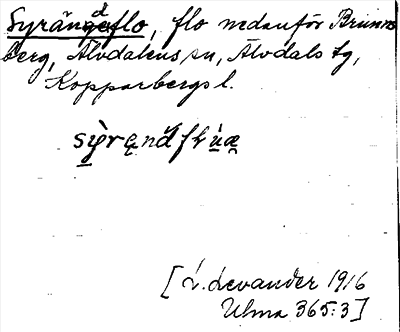 Syrändeflo, flo nedanför Brunns
berg, Älvdalens sn, Älvdals tg,
Kopparbergs l.
[L. Levander 1916
Ulma 365:3]